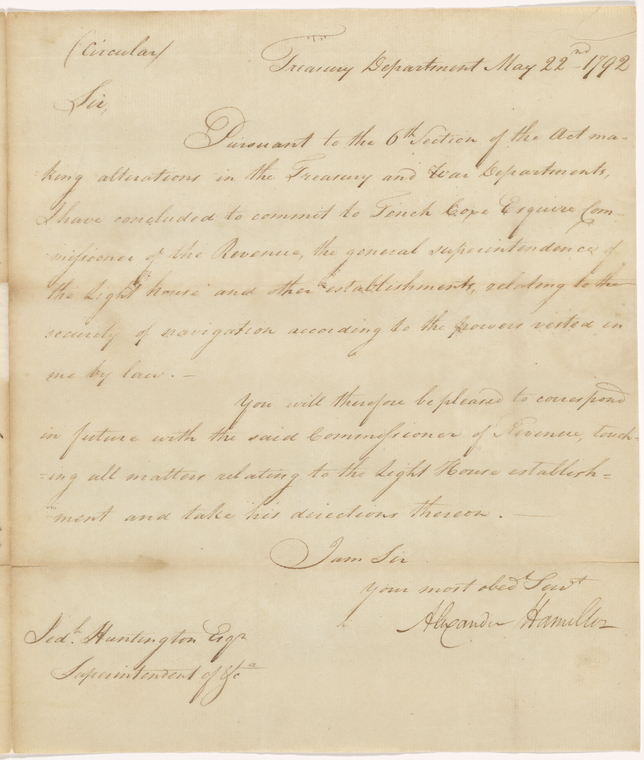 (Circular)
Treasury Department May 22nd 1792
Sir,
Pursuant to the 6th Section of the Act ma-
king alterations in the Treasury and War Departments,
I have concluded to commit to Tench Coxe Esquire Com-
missioner of the Revenue, the general superintendence of
the Light house and other establishments, relating to the
security of navigation according to the powers vested in
me by law. —
You will therefore be pleased to correspond
in future with the said Commissioner of Revenue, touch-
-ing all matters relating to the Light House establish=
"ment and take his directions thereon. —
I am Sir
Your most obedt Servt
Alexander Hamilton
Jedh. Huntington Esqr
Superintendent of &ca